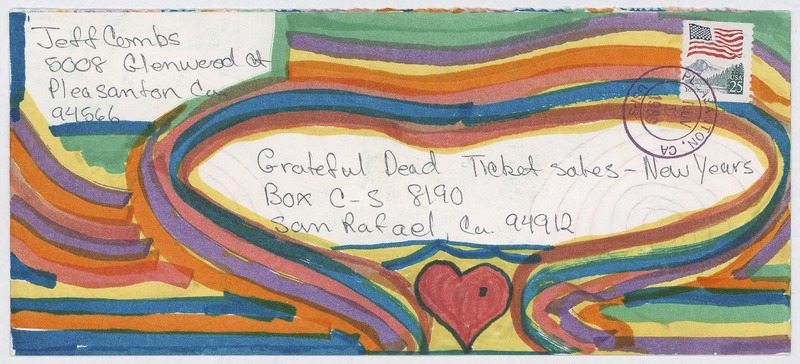 Jeff Combs
5008 Glenwood Ct
Pleasanton Ca
94566
USA
25
PLEASANTON, CA
Grateful Dead Ticket sales - New Years
Box C-S 8190
San Rafael, Ca. 94912